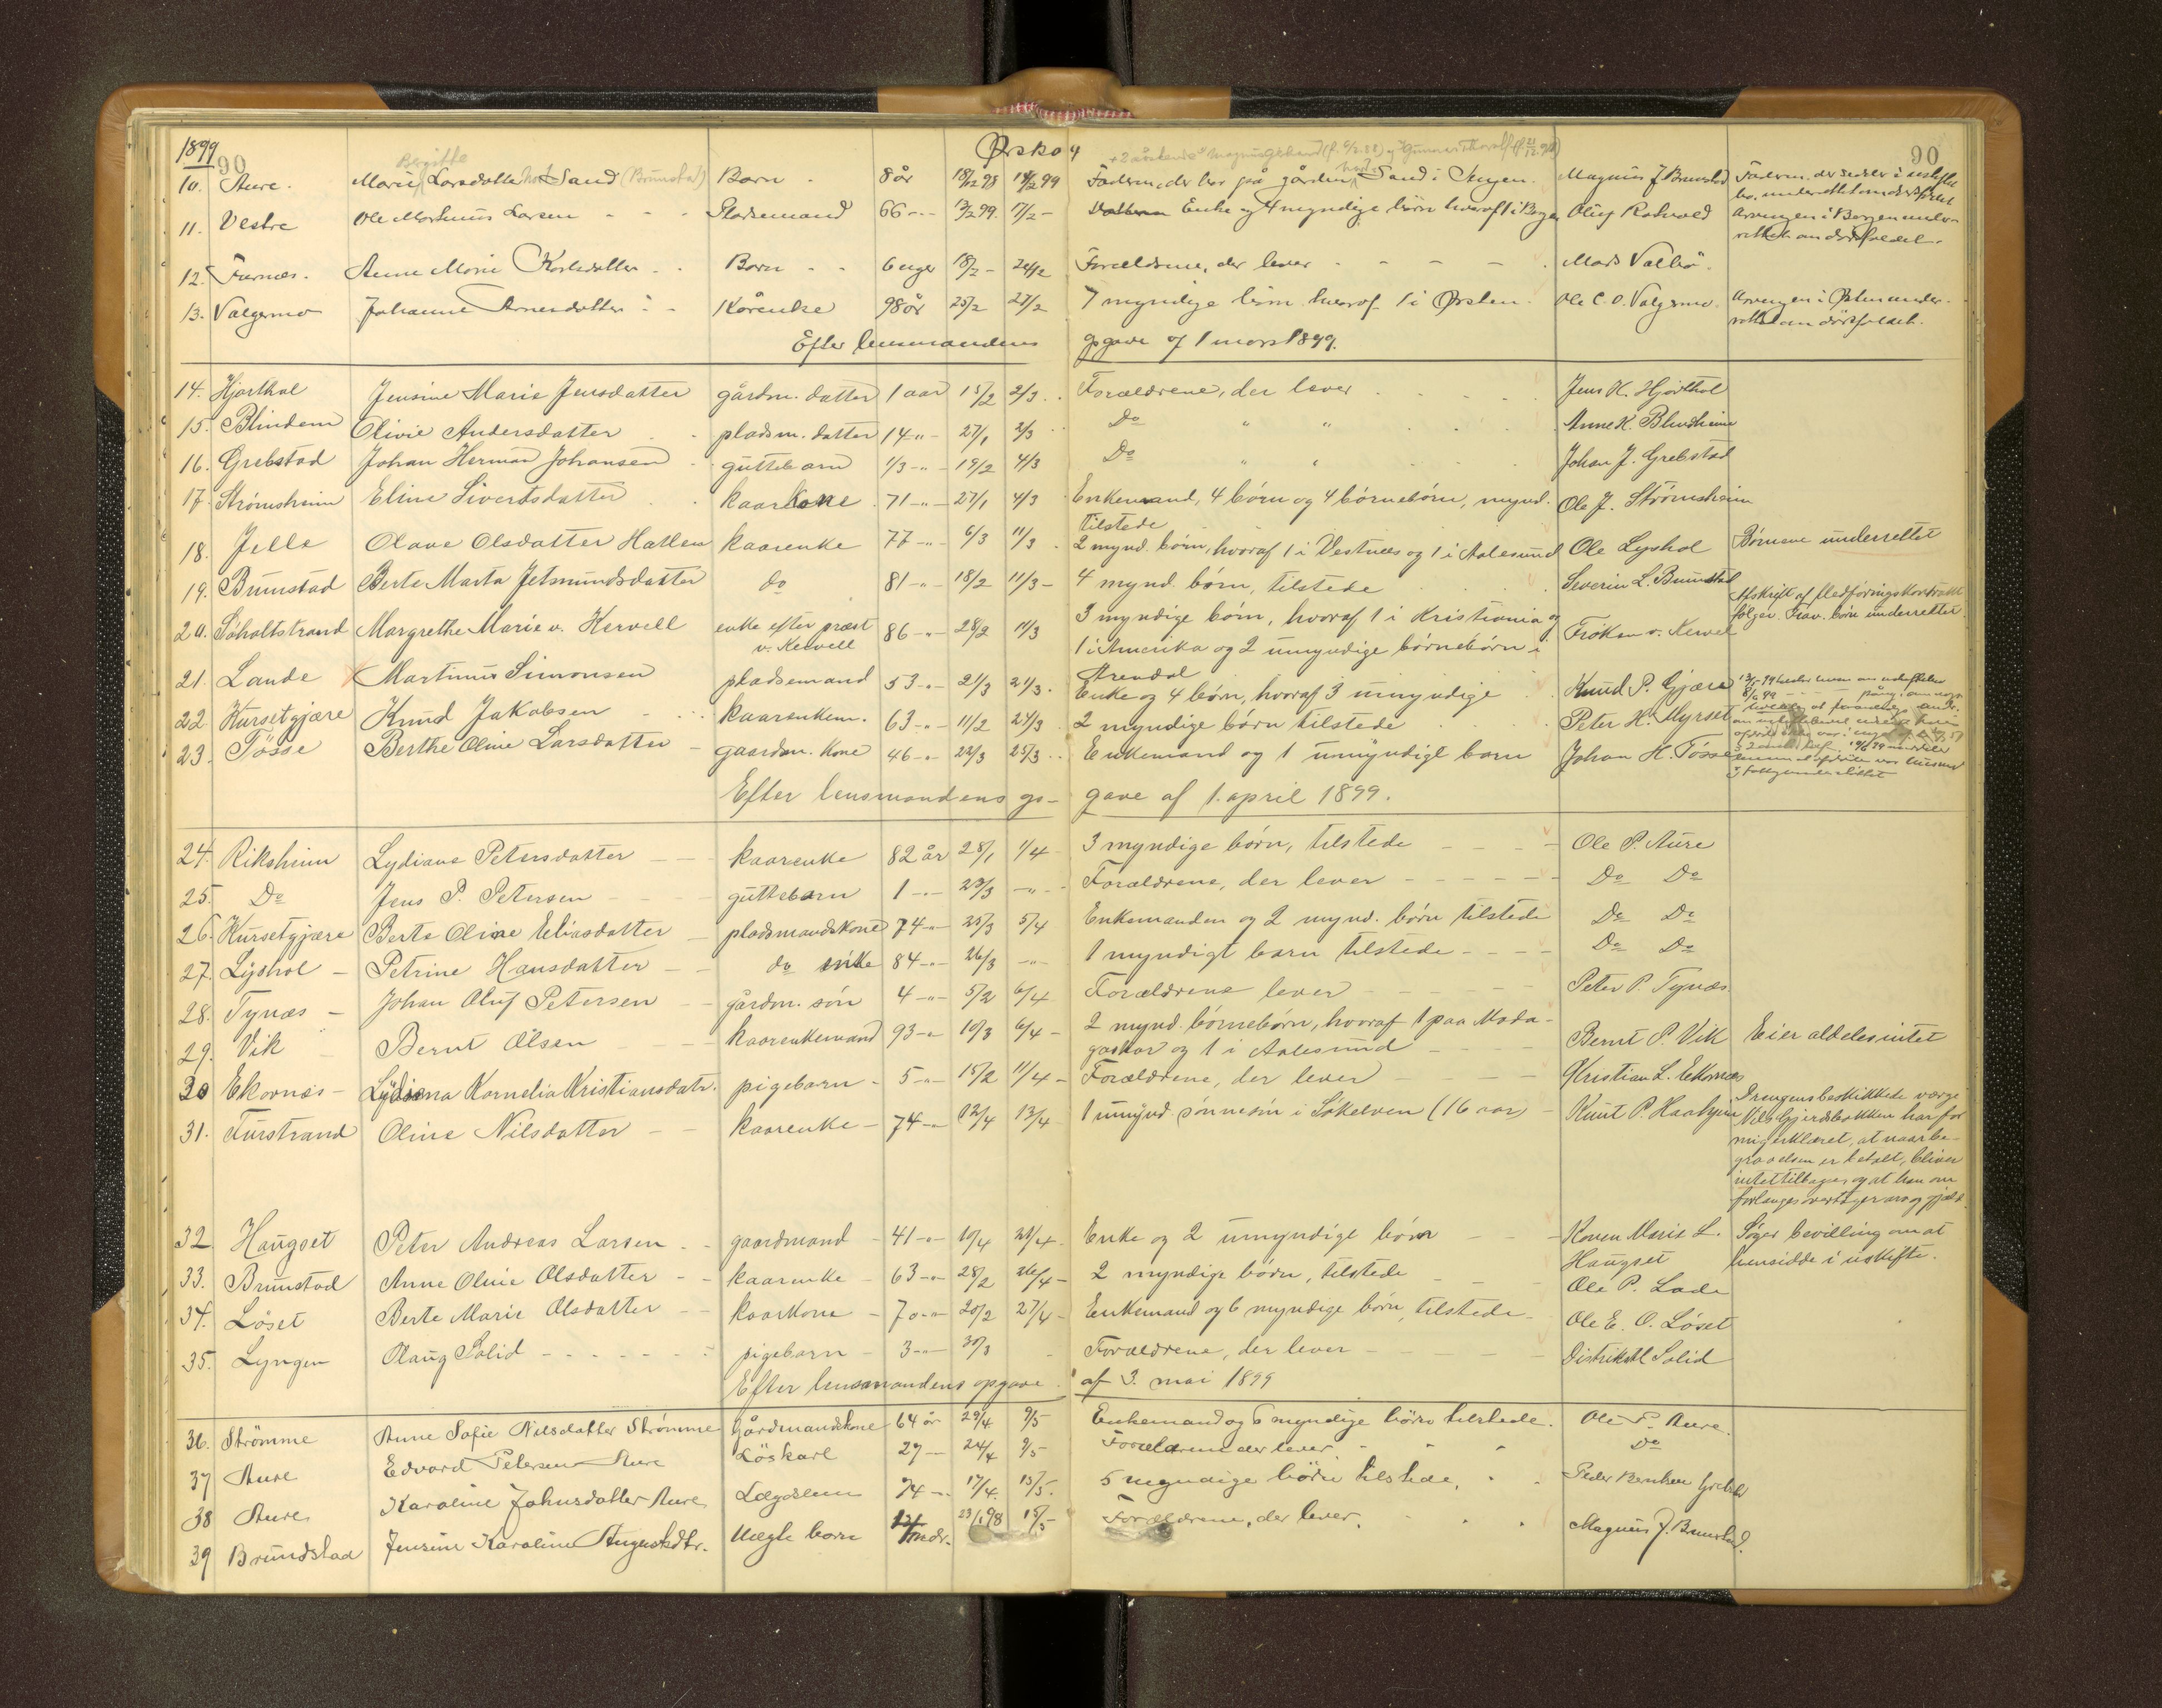 1899 Ørskog
90 90
Birgitte + 2 søskende Magnus
10. Aure. Marie Larsdatter Sand (Brunstad) Barn 8 år 18/12 98 14/2 99 Faderen, der bor på gården Sand i Magnus J. Brunstad Faderen, der sidder i uskiftet
bo, underrettet om dødsfaldet
11. Vestre Ole Martinus Larsen Pladsemand 66 - 13/2 99. 17/2 - Enke og 4 myndige børn hvoraf 1 i Bergen Oluf Rødvold Arvingen i Bergen under-
rettet om dødsfaldet.
12. Furnæs. Anne Marie Karlsdatter Barn 6 uger 18/2 - 24/2 Forældrene, der lever Mads Valbö.
13. Valgermo Johanne Arnesdatter Kårenke 98 år 25/2 27/2 7 myndige börn hvoraf 1 i Ørsten. Ole C. O. Valgermo. Arvingen i Ørsten under-
rettet om dødsfaldet.
Efter lensmandens opgave af 1 mars 1899.
14. Hjorthol Jensine Marie Jensdatter gårdm. datter 1 aar 15/2 2/3 Forældrene, der lever Jens K. Hjorthol
15. Blindem Olivie Andersdatter pladsm. datter 14 " - 27/1 2/3 Do " " Anne K. Blindheim
16. Grebstad Johan Herman Johansen guttebarn 1/3 - " - 19/2 4/3 Do " " Johan J. Grebstad
17. Strømsheim Eline Sivertsdatter kaarkone 71 - " - 27/1 4/3 Enkemand, 4 børn og 4 børnebørn, mynd. Ole J. Strømsheim
tilstede
18. Jelle Olave Olsdatter Hatlen kaarenke 77 - " - 6/3 11/3 2 mynd. børn, hvoraf 1 i Vestnæs og 1 i Aalesund Ole Lyshol Børnene underrettet
19. Brunstad Berte Marta Jetmundsdatter do 81 - " - 18/2 11/3 - 4 mynd. børn, tilstede Severin L. Brunstad
Afskrift af flødføringskontrakt
20. Søholtstrand Margrethe Marie v. Kervell enke efter præst 86 - " - 28/2 11/3 3 myndige børn, hvoraf 1 i Kristiania og Frøken v. Kervel følger. Frav. børn underrettet.
v. Kervell 1 i Amerika og 2 umyndige børnebørn i
Arendal
21. Lande Martinus Simonsen pladsemand 53 - " - 21/3 21/3. Enke og 4 børn, hvoraf 3 umyndige Knud P. Gjære
22 Kursetgjære Knud Jakobsen kaarenkem. 63 - " - 11/2 24/3 2 myndige børn tilstede Peter K. Myrset
23. Tösse Berthe Oline Larsdatter gaardm. kone 46 - " - 22/3 25/3 Enkemand og 1 umyndigt barn Johan H. Tøsse
Efter lensmandens op- gave af 1. april 1899.
24. Riksheim Lydiane Petersdatter kaarenke 82 år 28/1 1/4 3 myndige børn, tilstede Ole P. Aure
25. Do Jens P. Petersen guttebarn 1 - " - 23/3 - " - Forældrene, der lever Do Do
26. Kursetgjære Berte Oline Eliasdatter pladsmandskone 74 - " - 25/3 5/4 Enkemanden og 2 mynd. børn tilstede Do Do
27. Lyshol Petrine Hansdatter do enke 84 - " - 26/3 - " - 1 myndigt barn tilstede Do Do
28. Tynæs Johan Oluf Petersen gårdm. søn 4 - " - 5/2 6/4 Forældrene lever Peter P. Tynæs
29. Vik Bernt Olsen kaarenkemand 93 - " 10/3 6/4 - 2 mynd. børnebørn, hvoraf 1 paa Mada- Bernt P. Vik Eier aldeles intet
gaskar og 1 i Aalesund
30 Ekornæs Lydiana Kornelia Kristiansdatr. pigebarn 5 - " - 15/2 11/4 - Forældrene, der lever Kristian L. Ekornæs
31. Furstrand Oline Nilsdatter kaarenke 74 - " 12/4 13/4 1 umynd. sønnesøn i Søkelven (16 aar) Knut P. Haahjem Drengens beskikkede værge
Nils Gjerdsbakken har for
mig erklæret, at naar be-
gravelsen er betalt, bliver
intet tilbage, og at han om
forlanges overtager arv og gjæld.
32 Haugset Peter Andreas Larsen gaardmand 41 - " - 10/4 24/4 - Enke og 2 umyndige børn Konen Marie L. Søger bevilling om at
Haugset hensidde i uskifte.
33. Brunstad Anne Oline Olsdatter kaarenke 63 - " 28/2 26/4 - 2 myndige børn, tilstede Ole P. Lade
34. Løset Berte Marie Olsdatter kaarkone 70 - " 20/2 27/4 - Enkemand og 6 myndige børn, tilstede Ole E. O. Løset
35. Lyngen Olaug Solid pigebarn 3 - " - 30/3 Forældrene, der lever Distriktsl Solid
Efter lensmandens opgave af 3. mai 1899
36. Strömme Anne Sofie Nilsdatter Strömme Gårdmandskone 64 år 29/4 9/5 Enkemand og 6 myndige börn tilstede. Ole P. Aure.
37 Aure Edvard Petersen Aure Löskarl 27 - 24/4 9/5 Forældrene der lever Do
38 Aure Karoline Johnsdatter Aure Lægdslem 74 - 17/4. 13/5. 5 myndige börn tilstede. Peder Berntsen Grebstad
39 Brundstad Jensine Karoline Augustsdtr. Uægte barn mdr. 23/1 98 15/5 Forældrene, der lever. Magnus J. Brunstad.